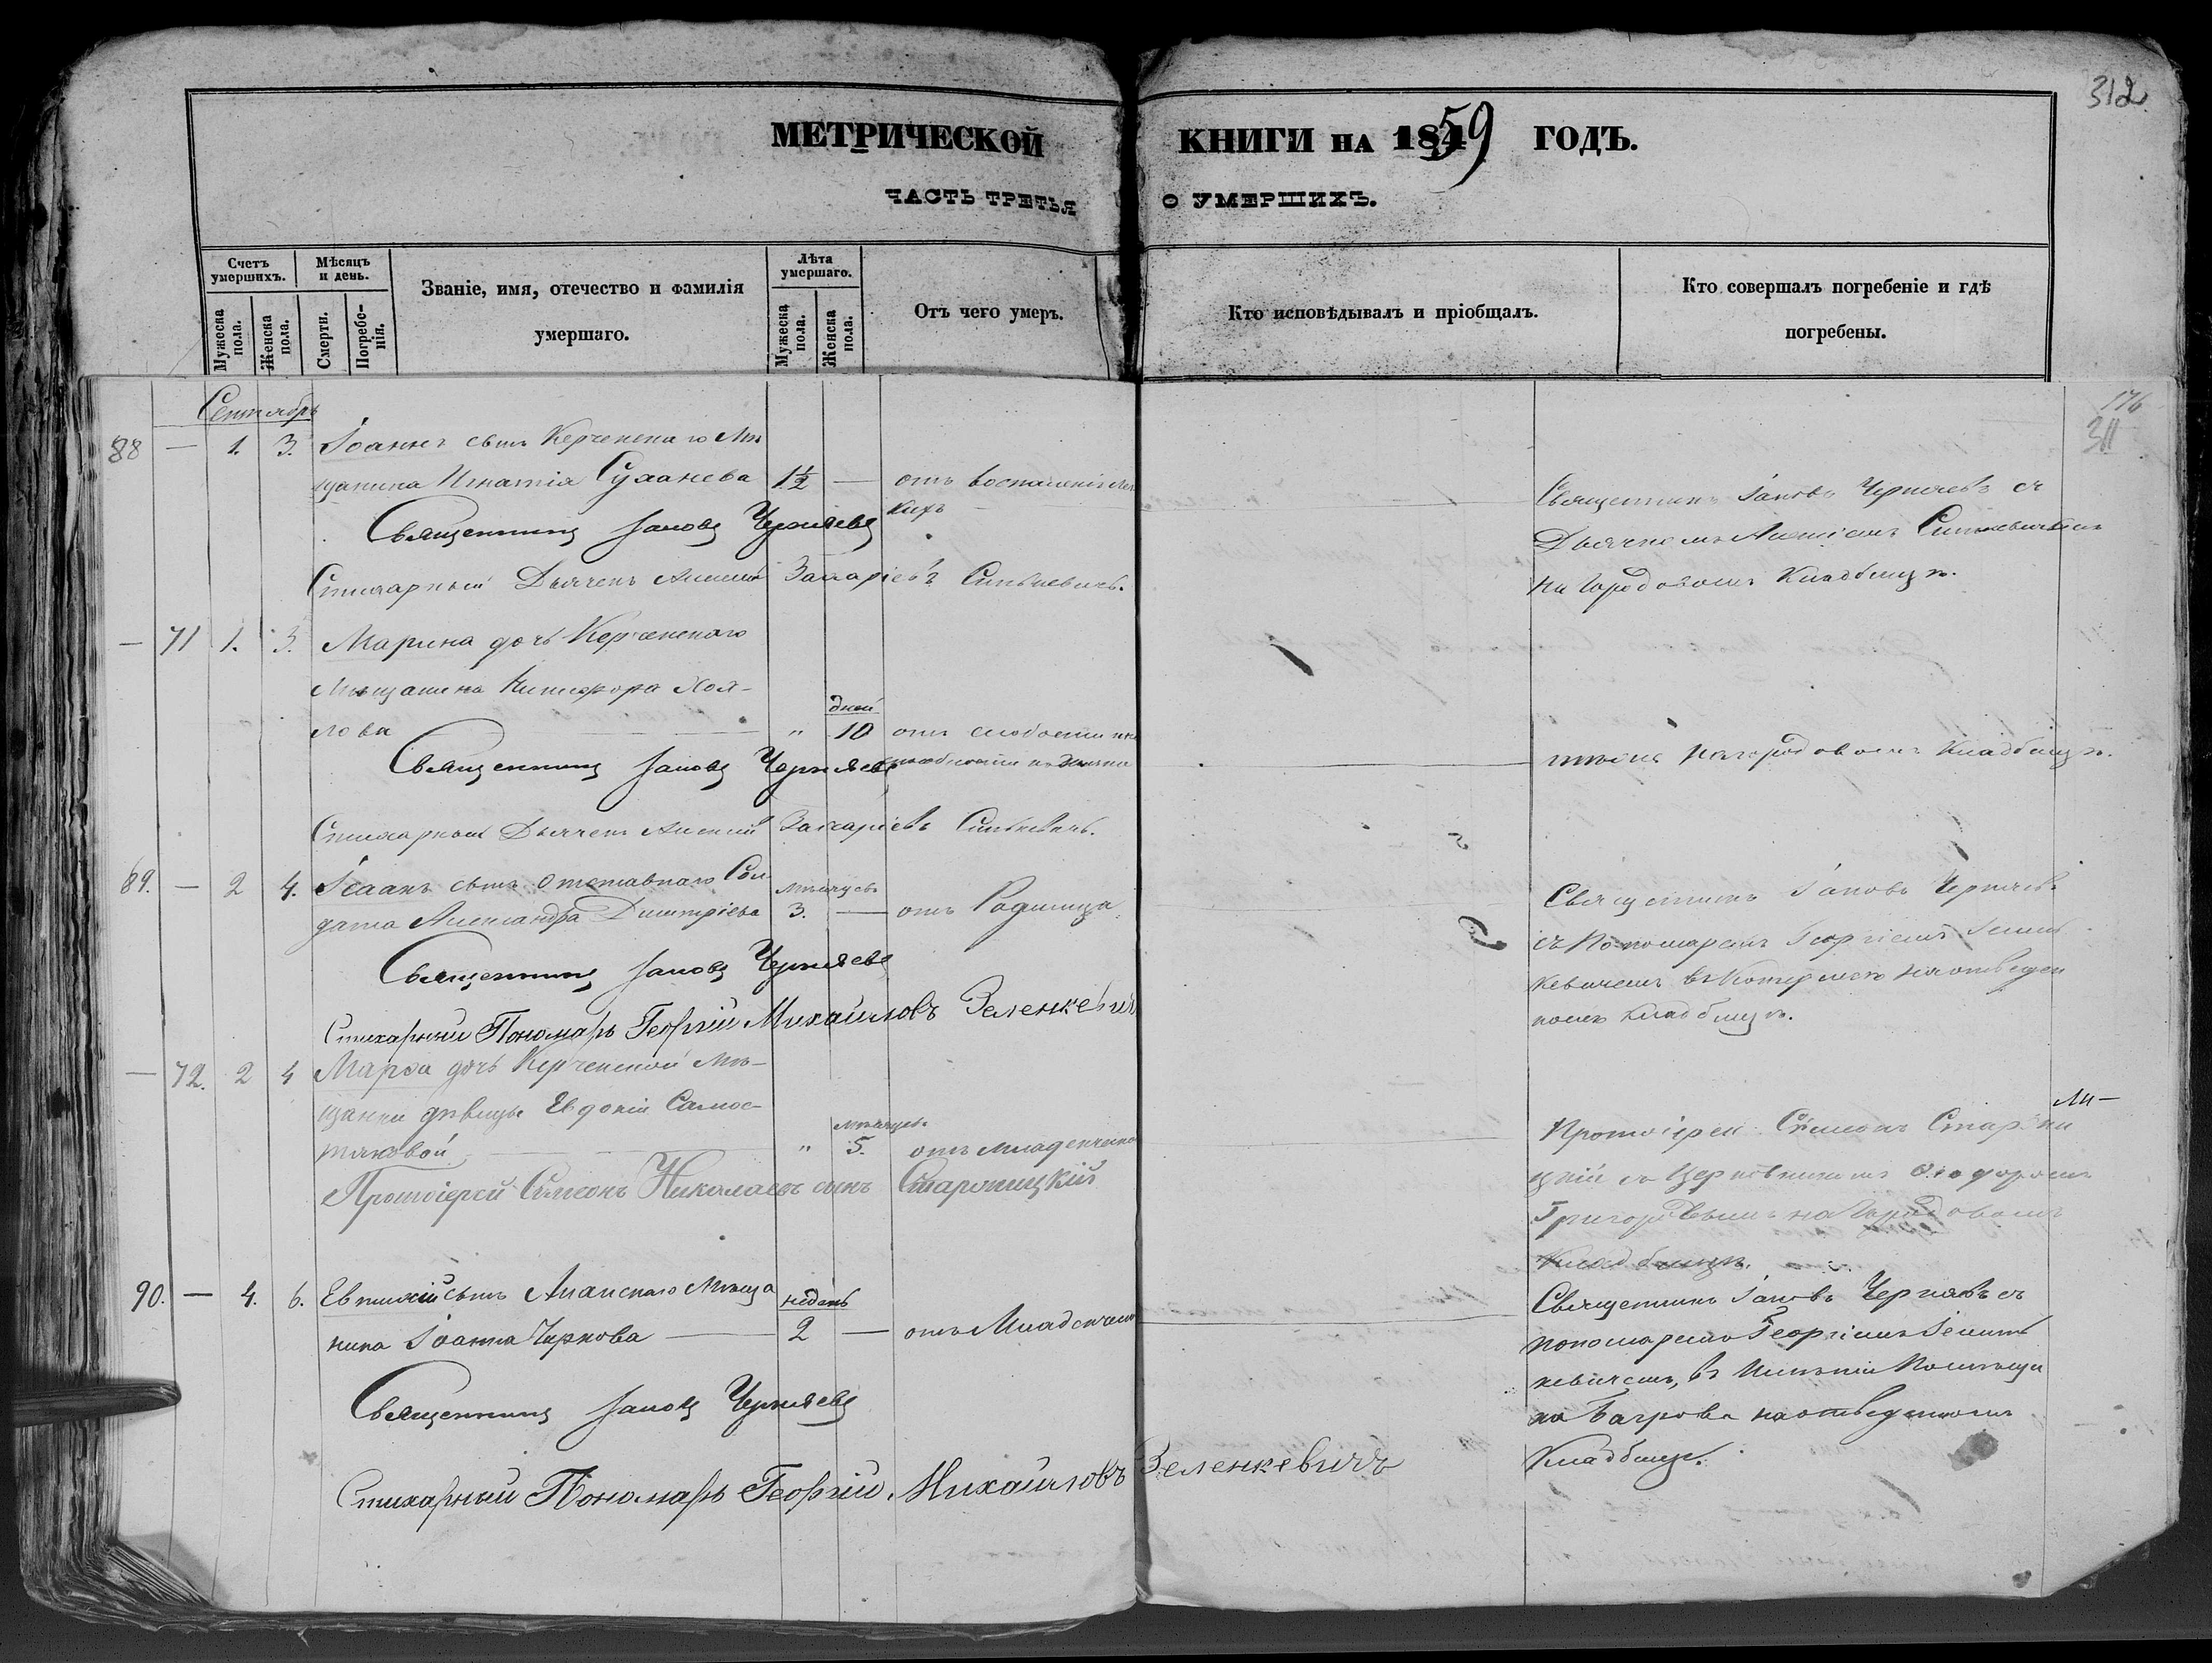 312
МЕТРИЧЕСКОЙ КНИГИ НА 1859 ГОДЪ.
ЧАСТЬ ТРЕТЬЯ О УМЕРШИХЪ.
Счетъ умершихъ.
Мужеска пола.
Женска пола.
Мѣсяцъ и день.
Смерти.
Погребенія.
Званіе, имя, отечество и фамилія умершаго.
Лѣта умершаго.
Мужеска пола.
Женска пола.
Отъ чего умеръ.
Кто исповѣдывалъ и пріобщалъ.
Кто совершалъ погребеніе и гдѣ погребены.
176
311
Сентябрь
88 — 1. 3. Іоаннъ сынъ Керченскаго Мѣ
щанина Игнатія Суханева 1½ — отъ воспаленія
Священникъ Іаковъ Черняевъ
Стихарный Дьячекъ Алексѣй Захаріевъ Синькевичъ.
Священникъ Іаковъ Черняевъ съ
Дьячкомъ Алексіемъ Синькевичемъ
на Городовомъ Кладбищѣ.
— 71 1. 3. Марина дочь Керченскаго
Мѣщанина Никифора Хох-
лова " дней 10 отъ слабости
Священникъ Іаковъ Черняевъ
Стихарный Дьячекъ Алексій Захаріевъ Синькевичъ.
тѣже на городовомъ Кладбищѣ.
89. — 2 4. Ісаакъ сынъ отставнаго Сол
дата Александра Димитріева мѣсяцевъ 3. — отъ Родимца
Священникъ Іаковъ Черняевъ
Стихарный Пономарь Георгій Михайловъ Зеленкевичъ
Священникъ Іаковъ Черняевъ
съ Пономаремъ Георгіемъ Зелен
кевичемъ въ на отведен
номъ кладбищѣ.
— 72. 2 4 Марѳа дочь Керченской Мѣ-
щанки дѣвицы Евдокіи Самос-
тяковой " мѣсяцевъ 5. отъ младенческой
Протоіерей Симеонъ Николаевъ сынъ Старопицкій
Протоіерей Симеонъ
цкій съ Церковникомъ Ѳеодоромъ
Григоровымъ на Городовомъ
Кладбищѣ.
90. — 4. 6. Евтихій сынъ Анапскаго Мѣща
нина Іоанна Чернова недѣль 2 — отъ Младенческой
Священникъ Іаковъ Черняевъ
Стихарный Пономарь Георгій Михайловъ Зеленкевичъ
Священникъ Іаковъ Черняевъ съ
пономаремъ Георгіемъ Зелен
кевичемъ, въ Имѣніи Помѣщи
ка Багрова на отведенномъ
Кладбищѣ.